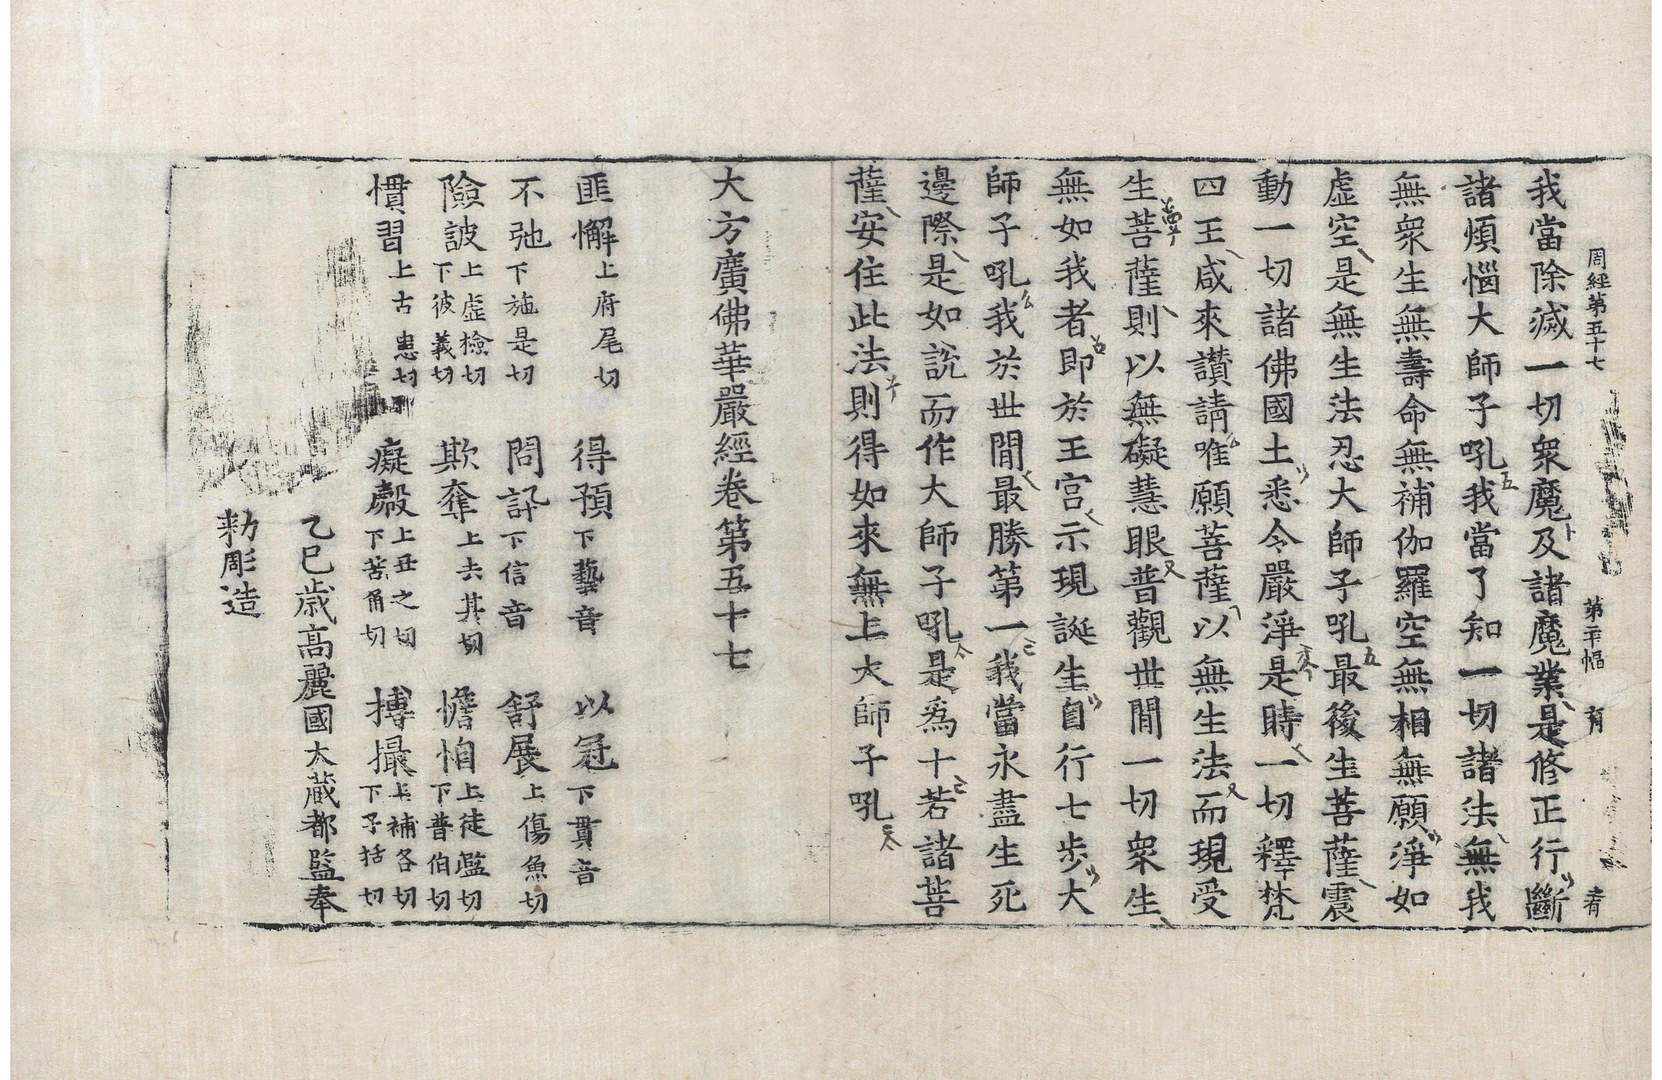 周經第五十七 第二十幅 育
我當除滅一切衆魔及諸魔業是修正行斷
諸煩惱大師子吼我當了知一切諸法無我
無衆生無壽命無補伽羅空無相無願淨如
虛空是無生法忍大師子吼最後生菩薩震
動一切諸佛國土悉令嚴淨是時一切釋梵
四王咸來讃請唯願菩薩以無生法而現受
生菩薩則以無礙慧眼普觀世閒一切衆生
無如我者即於王宮示現誕生自行七步大
師子吼我於世閒最勝第一我當永盡生死
邊際是如說而作大師子吼是爲十若諸菩
薩安住此法則得如來無上大師子吼
大方廣佛華嚴經卷第五十七
匪懈上府尾切 得預下藝音 以冠下貫音
不弛下施是切 問訊下信音 舒展上傷魚切
險詖上虛撿切下彼義切 欺奪上去其切 憺怕上徒盬切下普伯切
慣習上古患切 癡㱿上丑之切下苦角切 搏撮上補各切下子括切
乙巳歲高麗國大藏都監奉
勑彫造